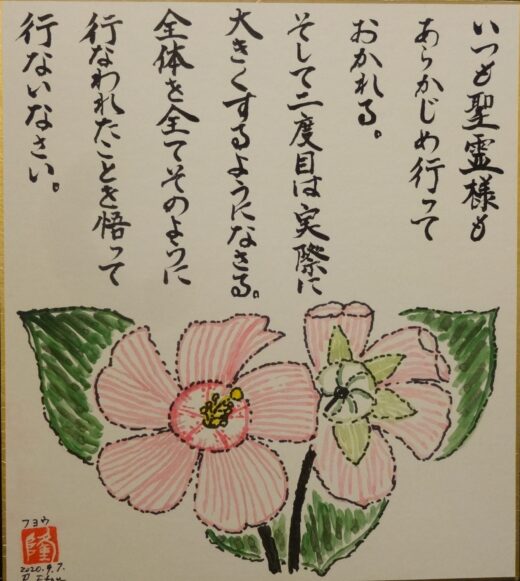 いつも聖霊様も
あらかじめ行って
おかれる。
そして二度目は実際に
大きくするようになさる。
全体を全てそのように
行なわれたことを悟って
行ないなさい。
フヨウ
隆
2020.9.7.